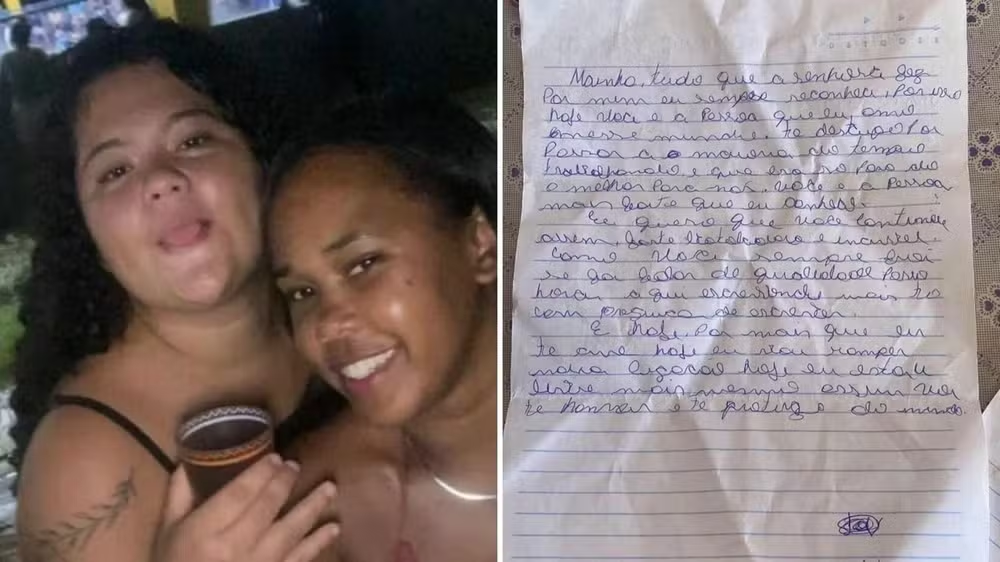 Mainha, tudo que a senhora fez
Por mim eu sempre reconheci, Por isso
hoje você e a Pessoa que eu amo
nesse mundo, te desculpa Por
Passar a maioria do tempo
trabalhando e que era so Para da
o melhor Para nos. Você e a Pessoa
mais forte que eu conheço.
Eu quero que você continue
assim, forte batalhadora e incrivel.
como você sempre foi
se for falar de qualidade Passo
horas aqui escrevendo mais to
com preguiça de escrever.
E hoje, Por mais que eu
te ame hoje eu vou romper
nossa ligação hoje eu estou
livre mais mesmo assim vou
te honrar e te protege do mundo.